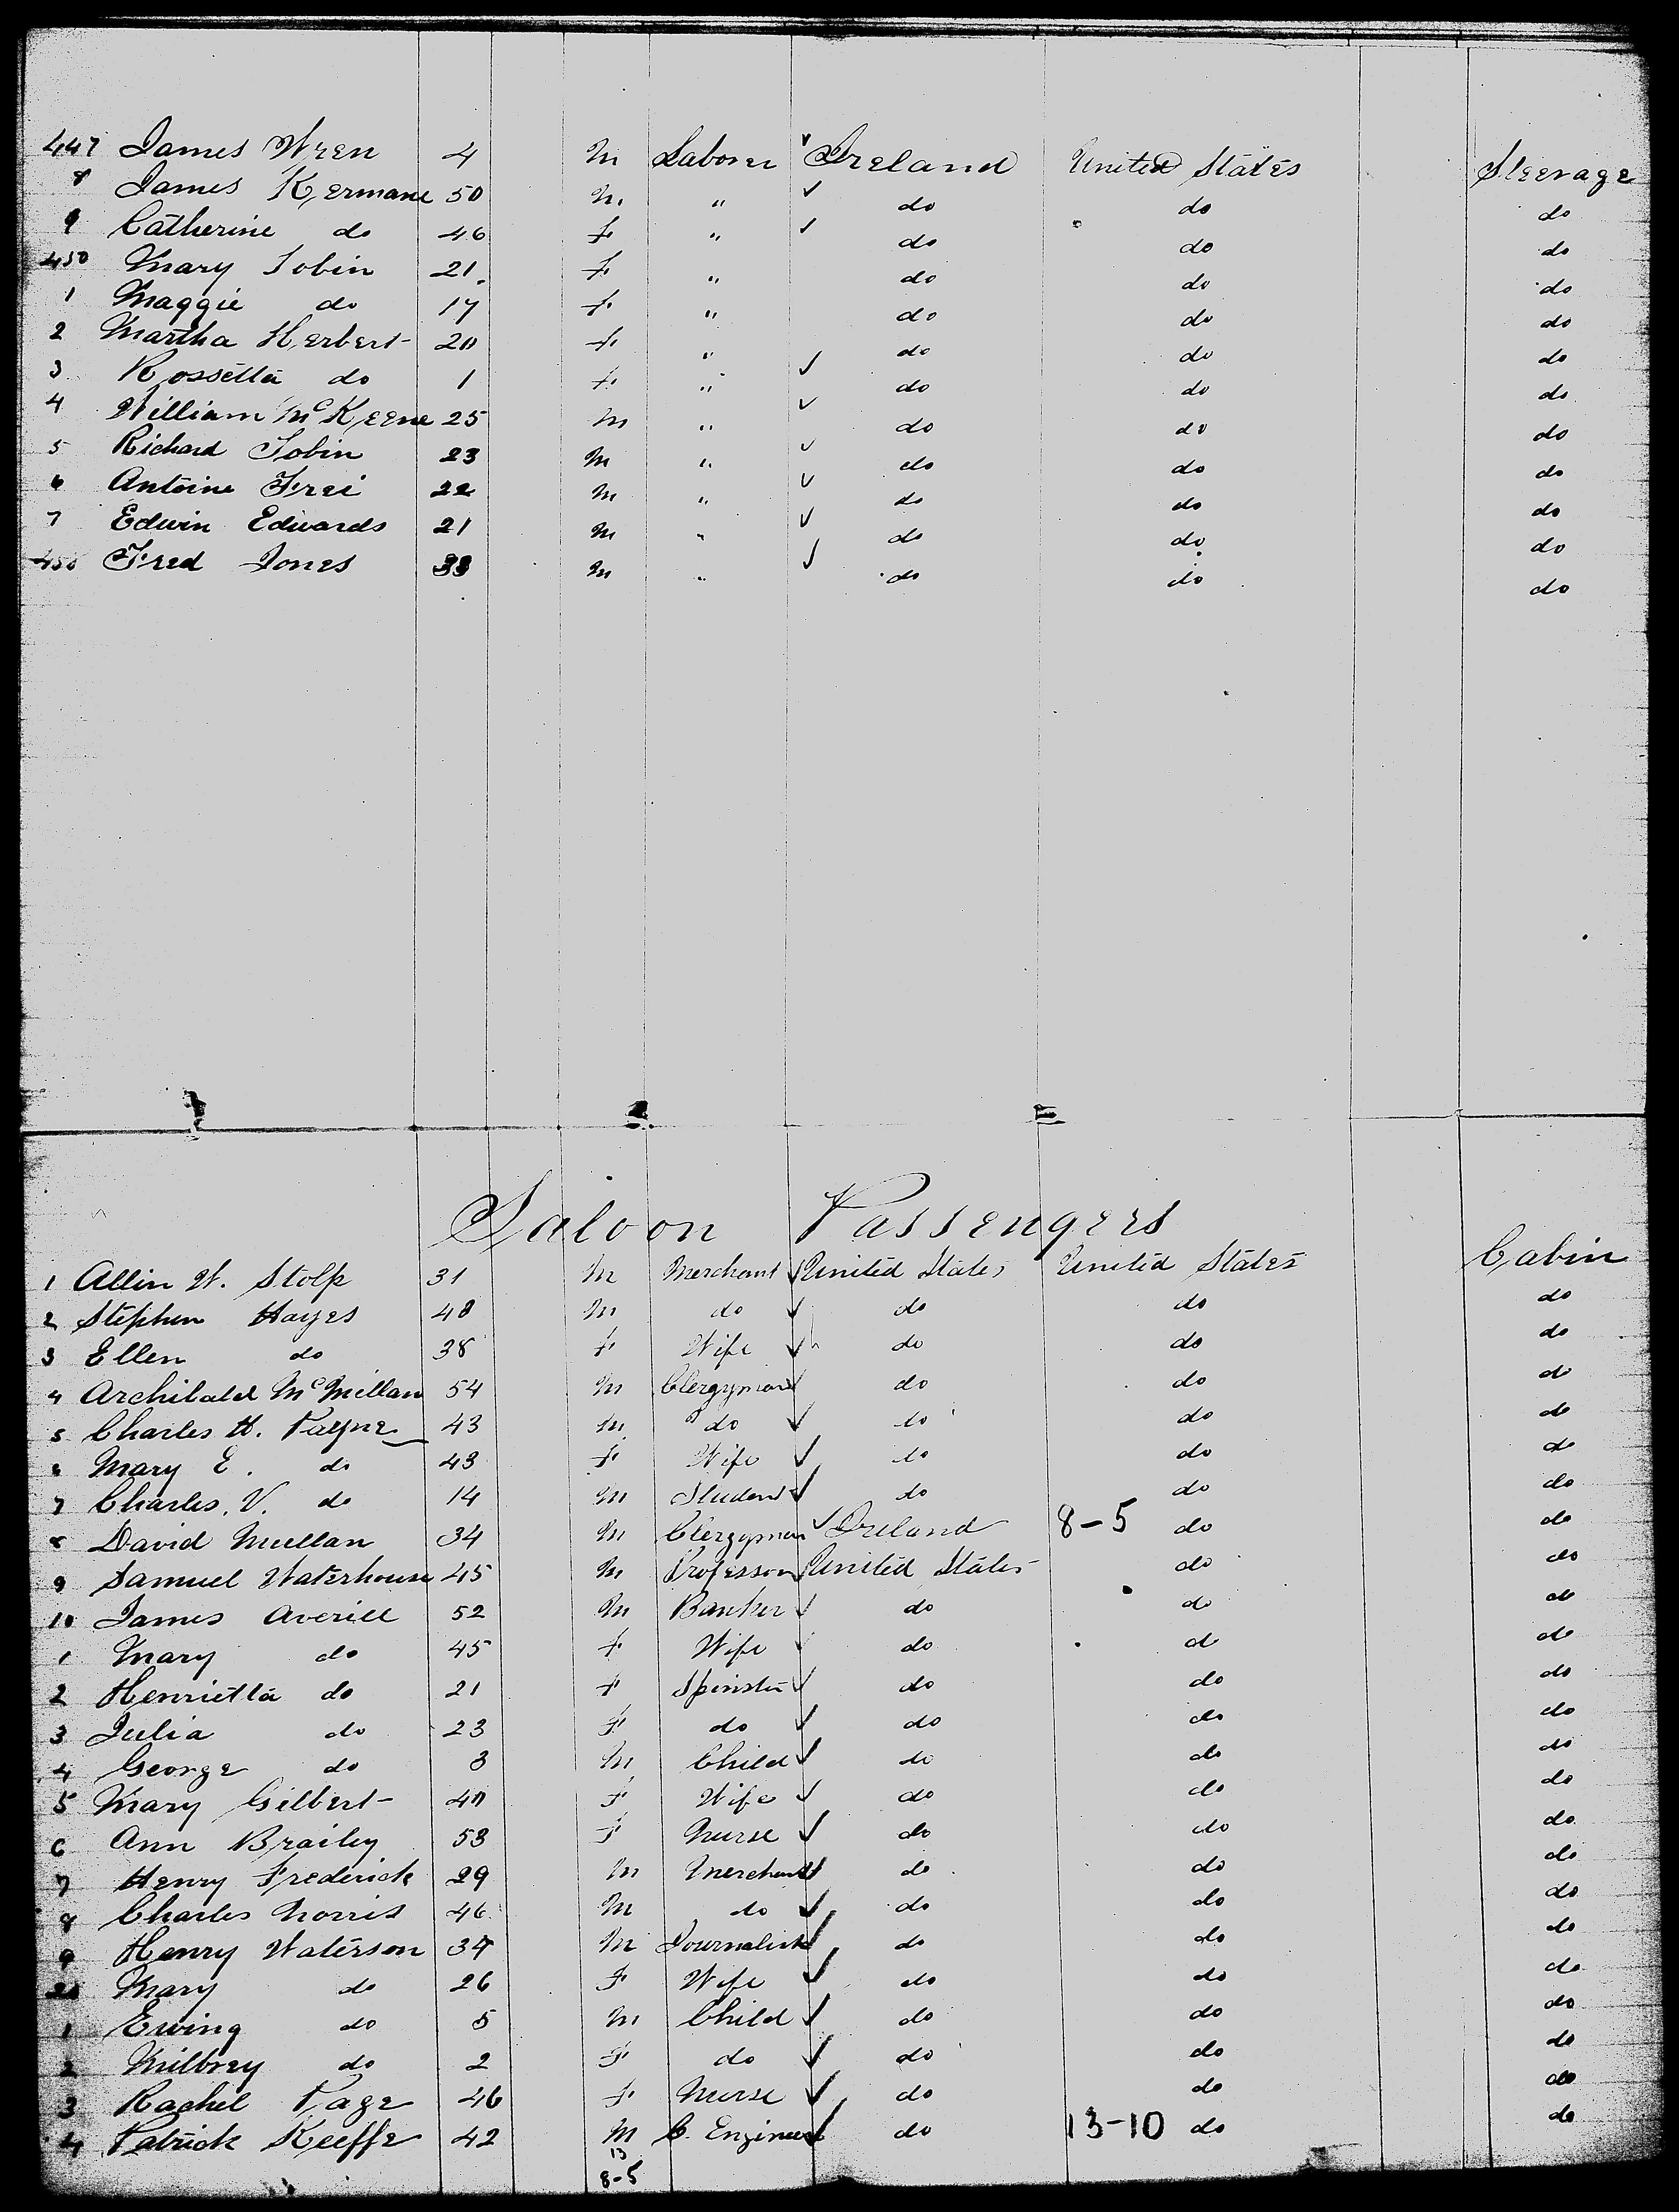 447 James Wren 4 M Laborer Ireland United States Steerage
8 James Kermane 50 M " do do do
9 Catherine do 46 F " do do do
450 Mary Tobin 21 F " do do do
1 Maggie do 17 F " do do do
2 Martha Herbert 20 F " do do do
3 Rossetta do 1 F " do do do
4 William McKeene 25 M " do do do
5 Richard Tobin 23 M " do do do
6 Antoine Frei 22 M " do do do
7 Edwin Edwards 21 M " do do do
458 Fred Jones 33 M " do do do
Saloon Passengers
1 Allin W. Stolp 31 M Merchant United States United States Cabin
2 Stephen Hayes 48 M do do do do
3 Ellen do 38 F Wife do do do
4 Archibald McMillan 54 M Clergyman do do do
5 Charles H. Payne 43 M do do do do
6 Mary E. do 43 F Wife do do do
7 Charles. V. do 14 M Student do do do
8 David Mullan 34 M Clergyman Ireland 8-5 do do
9 Samuel Waterhouse 45 M Professor United States do do
10 James Averill 52 M Banker do do do
1 Mary do 45 F Wife do do do
2 Henrietta do 21 F Spinster do do do
3 Julia do 23 F do do do do
4 George do 3 M Child do do do
5 Mary Gilbert 40 F Wife do do do
6 Ann Brailey 53 F Nurse do do do
7 Henry Frederick 29 M Merchant do do do
8 Charles Norris 46 M do do do do
9 Henry Waterson 34 M Journalist do do do
20 Mary do 26 F Wife do do do
1 Ewing do 5 M Child do do do
2 Milbrey do 2 F do do do do
3 Rachel Page 46 F Nurse do do do
4 Patrick Keeffe 42 M C. Engineer do 13-10 do do
13
8-5